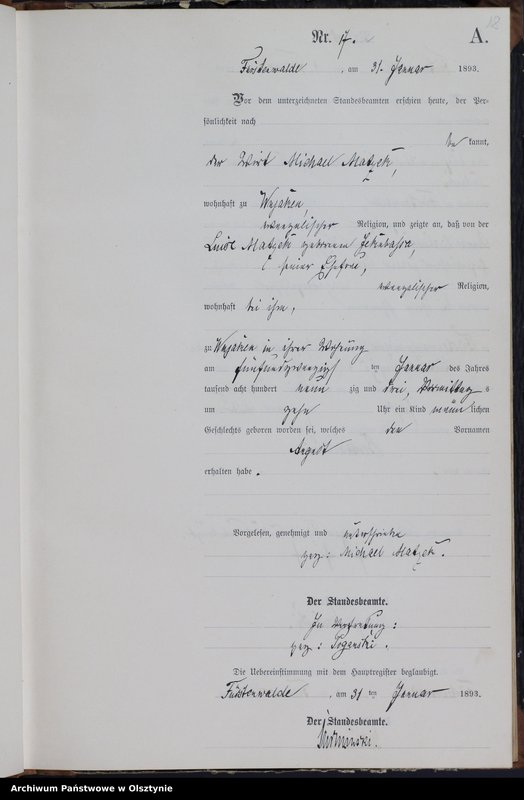 18
Nr. 17.
A.
Fürstenwalde, am 31. Januar 1893.
Vor dem unterzeichneten Standesbeamten erschien heute, der Per-
sönlichkeit nach
be kannt,
der Wirt Michael Matzek,
wohnhaft zu Wujaken,
evangelischer Religion, und zeigte an, daß von der
Luise Matzek geborenen
seiner Ehefrau,
evangelischer Religion,
wohnhaft bei ihm,
zu Wujaken in ihrer Wohnung
am fünfundzwanzigsten Januar des Jahres
tausend acht hundert neun zig und drei, Vormittag s
um zehn Uhr ein Kind männ lichen
Geschlechts geboren worden sei, welches den Vornamen
August
erhalten habe.
Vorgelesen, genehmigt und unterschrieben
gez: Michael Matzek.
Der Standesbeamte.
In Vertretung:
gez:
Die Uebereinstimmung mit dem Hauptregister beglaubigt.
Fürstenwalde, am 31 ten Januar 1893.
Der Standesbeamte.
Archiwum Państwowe w Olsztynie